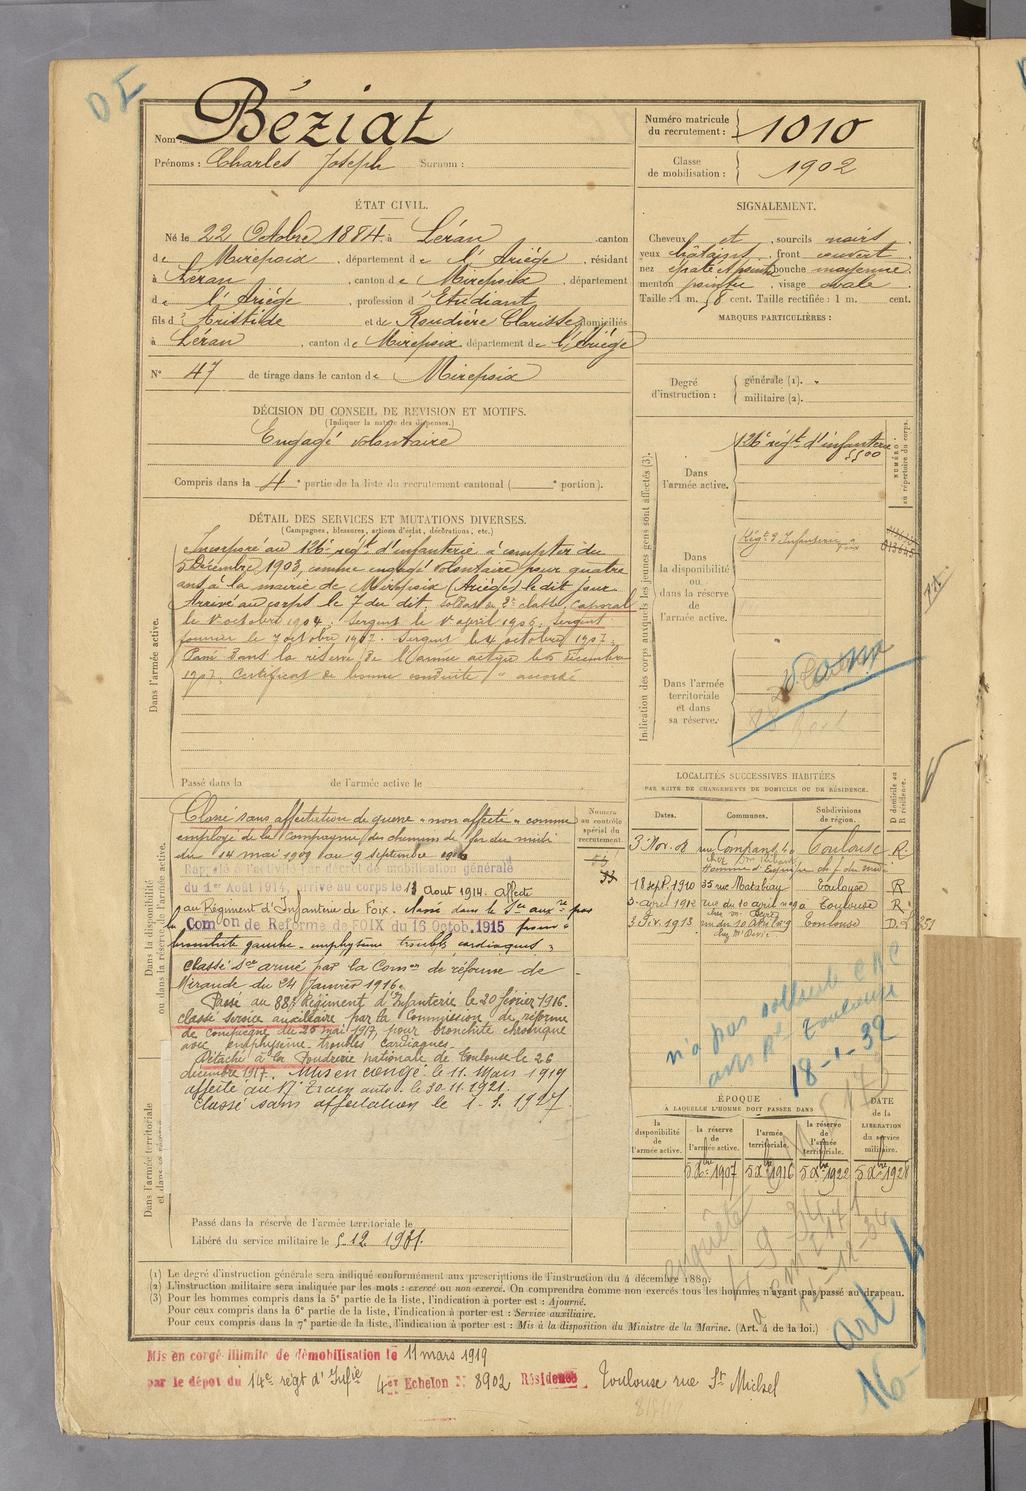 Nom : Béziat
Prénoms : Charles Joseph Surnom :
Numéro matricule
du recrutement : 1010
Classe
de mobilisation : 1902
ÉTAT CIVIL.
Né le 22 Octobre 1884 à Léran canton
de Mirepoix, département de l'Ariége, résidant
à Léran, canton de Mirepoix, département
de l'Ariége, profession d'Etudiant
fils d'Aristide et de Roudière Clarisse domiciliés
à Léran, canton de Mirepoix département de l'Ariége
N° 47 de tirage dans le canton de Mirepoix
SIGNALEMENT.
Cheveux et, sourcils noirs
yeux châtains, front couvert
nez épaté bouche moyenne
menton pointu, visage ovale
Taille : 1 m. 58 cent. Taille rectifiée : 1 m. cent.
MARQUES PARTICULIÈRES :
Degré
d'instruction :
générale (1).
militaire (2).
DÉCISION DU CONSEIL DE REVISION ET MOTIFS.
(Indiquer la nature des dispenses.)
Engagé volontaire
Compris dans la 4e partie de la liste du recrutement cantonal ( e portion).
DÉTAIL DES SERVICES ET MUTATIONS DIVERSES.
(Campagnes, blessures, actions d'éclat, décorations, etc.)
Dans l'armée active.
Incorporé au 126e régt d'infanterie à compter du
5 Décembre 1903, comme engagé volontaire pour quatre
ans à la mairie de Mirepoix (Ariége) le dit jour
Arrivé au corps le 7 du dit, soldat de 2e classe, caporal
le 1er octobre 1904. Sergent le 1er avril 1906. Sergent
fourrier le 7 octobre 1907. Sergent le 4 octobre 1907.
Passé dans la réserve de l'armée active le 5 décembre
1907. Certificat de bonne conduite accordé
Passé dans la de l'armée active le
Indication des corps auxquels les jeunes gens sont affectés (3).
NUMÉRO
au répertoire du corps.
Dans
l'armée active.
126e régt d'infanterie
5500
Dans
la disponibilité
ou
dans la réserve
de
l'armée active.
Régt d'Infanterie
Foix
Dans l'armée
territoriale
et dans
sa réserve.
Dans la disponibilité
ou dans la réserve de l'armée active.
Classé sans affectation de guerre "non affecté" comme
employé de la Compagnie des chemins de fer du midi
du 14 mai 1909 au 9 septembre
Rappelé à l'activité par décret de mobilisation générale
du 1er Août 1914, arrivé au corps le 13 Aout 1914. Affecté
au Régiment d'Infanterie de Foix. Classé dans le Sce auxre par
la Comon de Réforme de FOIX du 16 Octob. 1915 pour
bronchite gauche - emphysème troubles cardiaques
Classé Sce armé par la Comon de réforme de
Mirande du 24 Janvier 1916.
Passé au 88e Régiment d'Infanterie le 20 février 1916.
classé service auxiliaire par la Commission de réforme
de Compiègne du 25 mai 1917, pour bronchite chronique
avec emphysème - troubles cardiaques -
Détaché à la Poudrerie nationale de Toulouse le 26
décembre 1917. Mis en congé le 11 Mars 1919
affecté au 17e Train auto. le 30.11.1921.
Classé sans affectation le 1-5.1927.
Numéro
au contrôle
spécial du
recrutement.
LOCALITÉS SUCCESSIVES HABITÉES
PAR SUITE DE CHANGEMENTS DE DOMICILE OU DE RÉSIDENCE.
Dates. Communes. Subdivisions
de région. D domicile ou
R résidence.
3 Nov. 08 rue Toulouse R
18 sept. 1910 35 rue Matabiau Toulouse R
3 avril 1912 rue du 10 avril n° 9 Toulouse R
3 Fév. 1913 rue du 10 Avril n° 9 Toulouse D.
n'a pas sollicité CMC
Toulouse
18-1-32
ÉPOQUE
À LAQUELLE L'HOMME DOIT PASSER DANS
DATE
de la
LIBÉRATION
du service
militaire.
la
disponibilité
de
l'armée active.
la réserve
de
l'armée active.
l'armée
territoriale.
la réserve
de
l'armée
territoriale.
5 Xbre 1907 5 Xbre 1916 5 Xbre 1922 5 Xbre 1928
enquête
Dans l'armée territoriale
Passé dans la réserve de l'armée territoriale le
Libéré du service militaire le 5-12 1931.
(1) Le degré d'instruction générale sera indiqué conformément aux prescriptions de l'instruction du 4 décembre 1889.
(2) L'instruction militaire sera indiquée par les mots : exercé ou non exercé. On comprendra comme non exercés tous les hommes n'ayant pas passé au drapeau.
(3) Pour les hommes compris dans la 5e partie de la liste, l'indication à porter est : Ajourné.
Pour ceux compris dans la 6e partie de la liste, l'indication à porter est : Service auxiliaire.
Pour ceux compris dans la 7e partie de la liste, l'indication à porter est : Mis à la disposition du Ministre de la Marine. (Art. 4 de la loi.)
Mis en congé illimité de démobilisation le 11 mars 1919
par le dépôt du 14e régt d'Infie 4er Echelon N° 8902 Résidence Toulouse rue St Michel